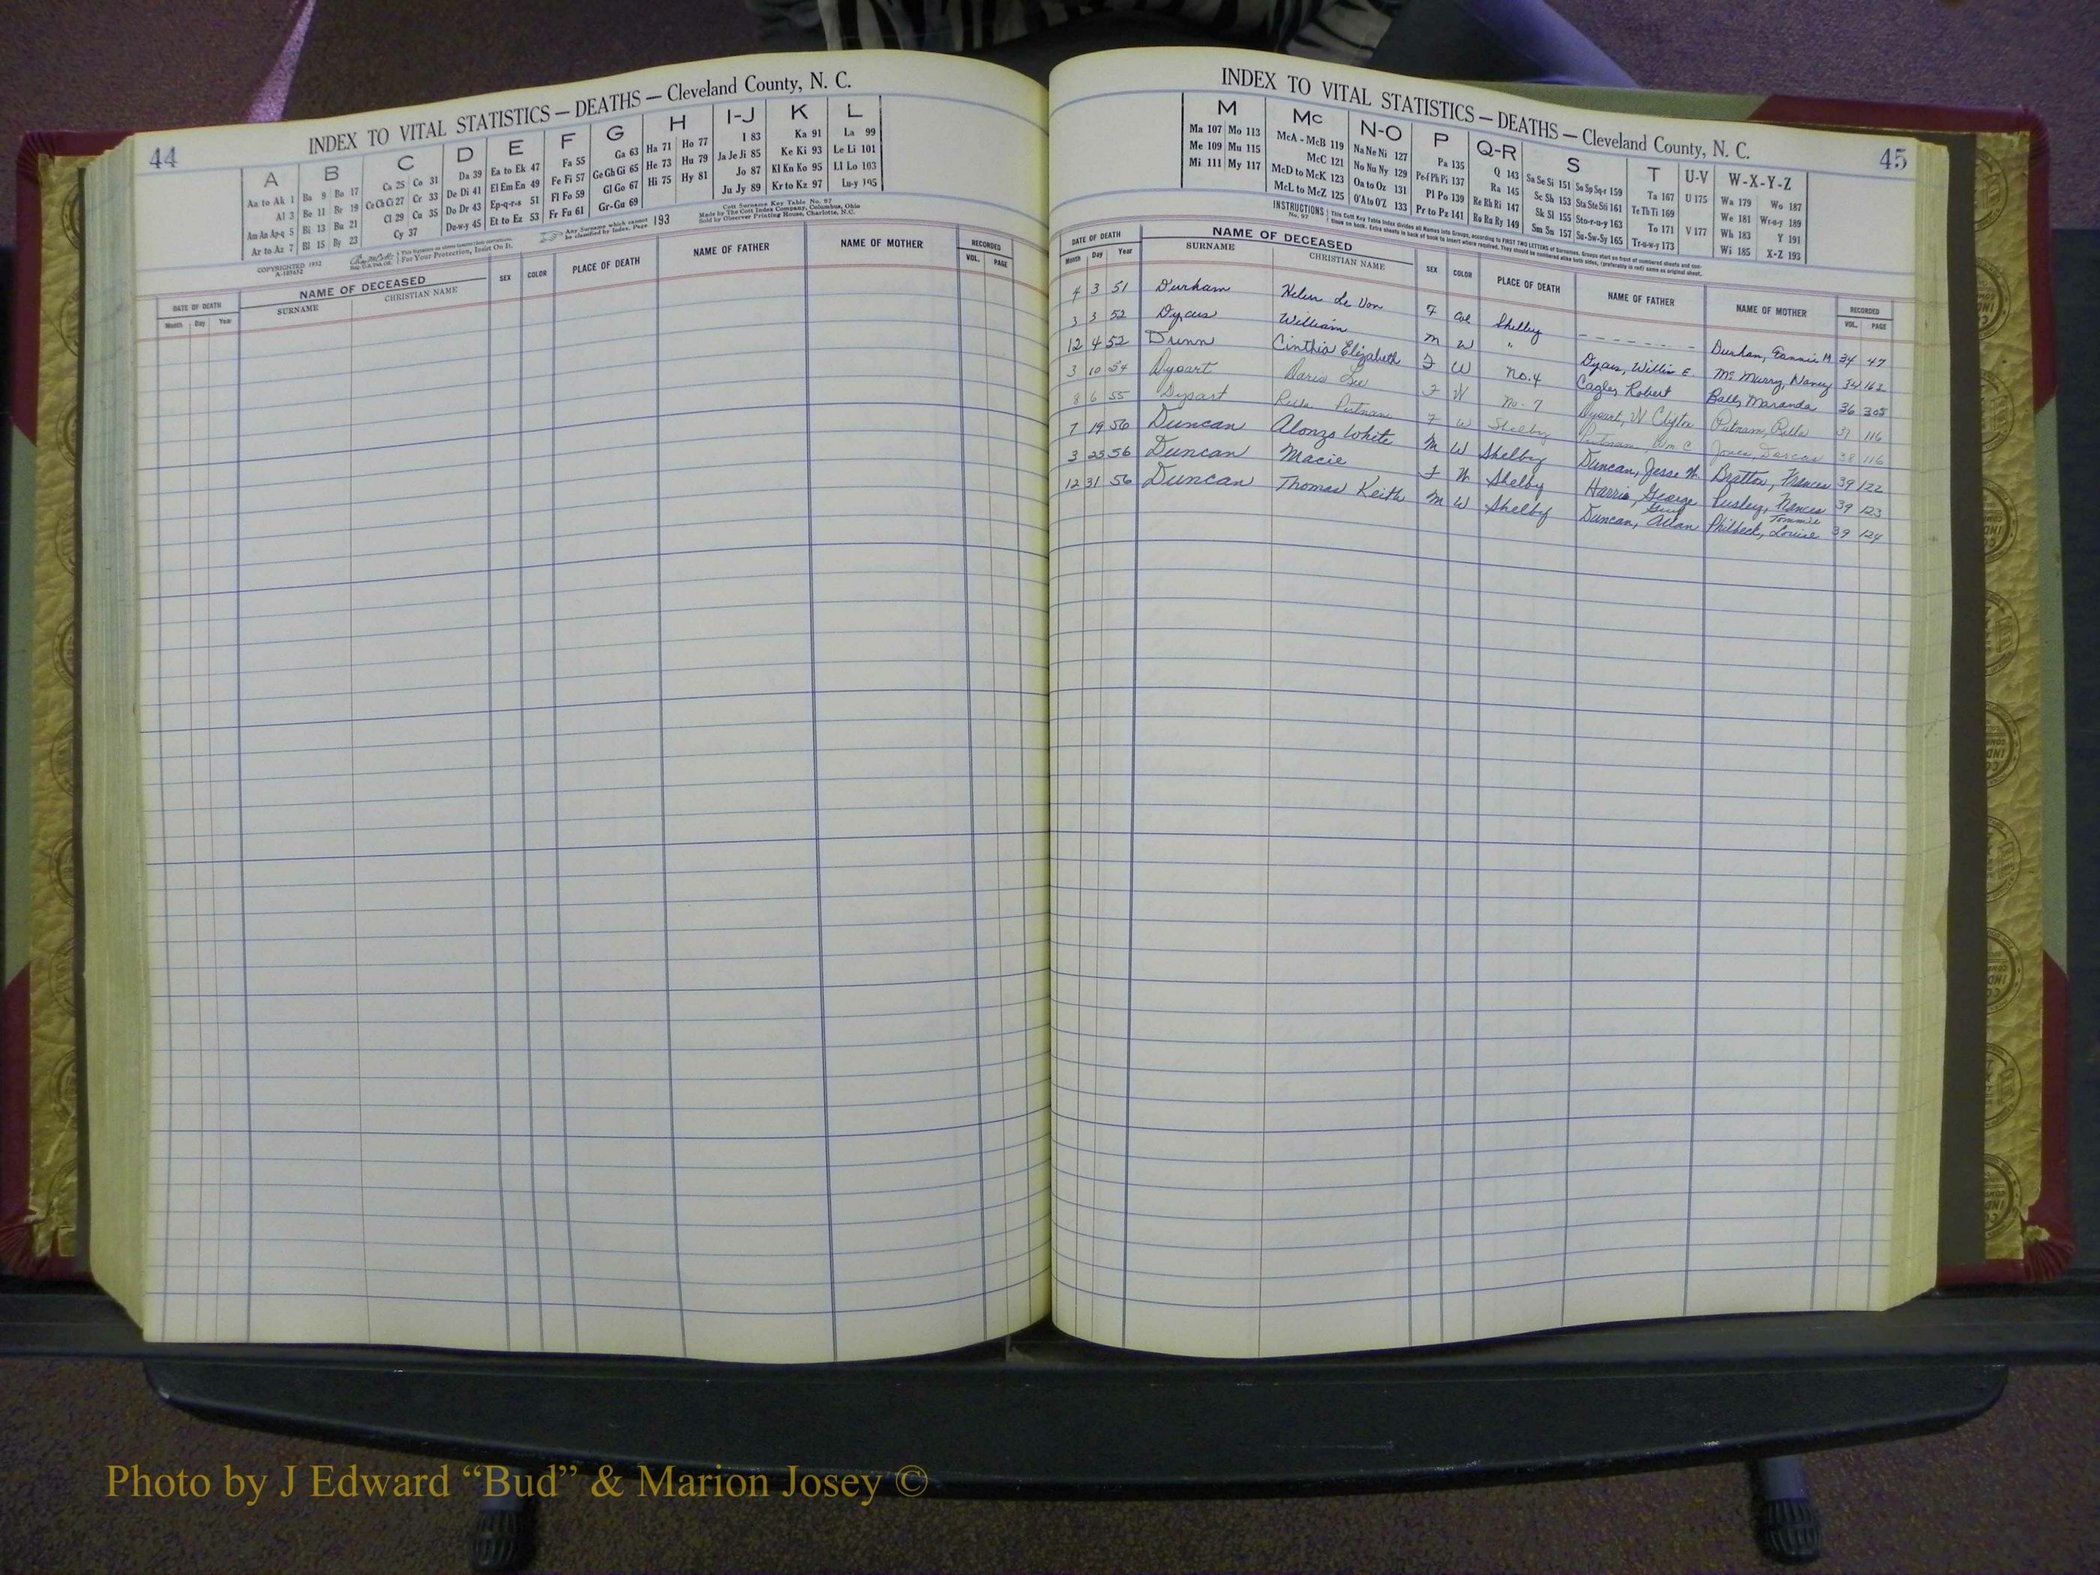 44
INDEX TO VITAL STATISTICS — DEATHS — Cleveland County, N. C.
A B C D E F G H I-J K L
Aa to Ak 1 Ba 9 Bo 17 Ca 25 Co 31 Da 39 Ea to Ek 47 Fa 55 Ga 63 Ha 71 Ho 77 I 83 Ka 91 La 99
Al 3 Be 11 Br 19 Ce Ch Ci 27 Cr 33 De Di 41 El Em En 49 Fe Fi 57 Ge Gh Gi 65 He 73 Hu 79 Ja Je Ji 85 Ke Ki 93 Le Li 101
Am An Ap-q 5 Bi 13 Bu 21 Cl 29 Cu 35 Do Dr 43 Ep-q-r-s 51 Fl Fo 59 Gl Go 67 Hi 75 Hy 81 Jo 87 Kl Kn Ko 95 Ll Lo 103
Ar to Az 7 Bl 15 By 23 Cy 37 Du-w-y 45 Et to Ez 53 Fr Fu 61 Gr-Gu 69 Ju Jy 89 Kr to Kz 97 Lu-y 105
COPYRIGHTED 1932
A-103652
This Signature on sheets insures their correctness.
For Your Protection, Insist On It.
Any Surname which cannot
be classified by Index, Page 193
Cott Surname Key Table No. 97
Made by The Cott Index Company, Columbus, Ohio
Sold by Observer Printing House, Charlotte, N.C.
DATE OF DEATH NAME OF DECEASED SEX COLOR PLACE OF DEATH NAME OF FATHER NAME OF MOTHER RECORDED
Month Day Year SURNAME CHRISTIAN NAME VOL. PAGE
45
INDEX TO VITAL STATISTICS — DEATHS — Cleveland County, N. C.
M Mc N-O P Q-R S T U-V W-X-Y-Z
Ma 107 Mo 113 McA - McB 119 Na Ne Ni 127 Pa 135 Q 143 Sa Se Si 151 So Sp Sq-r 159 Ta 167 U 175 Wa 179 Wo 187
Me 109 Mu 115 McC 121 No Nu Ny 129 Pe-f Ph Pi 137 Ra 145 Sc Sh 153 Sta Ste Sti 161 Te Th Ti 169 We 181 Wr-u-y 189
Mi 111 My 117 McD to McK 123 Oa to Oz 131 Pl Po 139 Re Rh Ri 147 Sk Sl 155 Sto-r-u-y 163 To 171 V 177 Wh 183 Y 191
McL to McZ 125 O'A to O'Z 133 Pr to Pz 141 Ro Ru Ry 149 Sm Sn 157 Su-Sw-Sy 165 Tr-u-w-y 173 Wi 185 X-Z 193
INSTRUCTIONS No. 97 This Cott Key Table Index divides all Names into Groups, according to FIRST TWO LETTERS of Surnames. Groups start on front of numbered sheets and con-
tinue on back. Extra sheets in back of book to insert where required. They should be numbered alike both sides, (preferably in red) same as original sheet.
DATE OF DEATH NAME OF DECEASED SEX COLOR PLACE OF DEATH NAME OF FATHER NAME OF MOTHER RECORDED
Month Day Year SURNAME CHRISTIAN NAME VOL. PAGE
4 3 51 Durham Helen Le Von F Col Shelby - - - - - - - Durham, Fannie M 34 47
3 3 52 Dycus William M W " Dycus, Willie E. McMurry, Nancy 34 163
12 4 52 Drunn Cinthia Elizabeth F W No. 4 Cagler Robert Balls Maranda 36 305
3 10 54 Dysart Doris Lee F W No. 7 Dysart, W Clifton Putnam, Rilla 37 116
8 6 55 Dysart Rilla Putnam F W Shelby Putnam, Wm C Jones, Dorcas 38 116
7 19 56 Duncan Alonzo White M W Shelby Duncan, Jesse W. Bratton, Frances 39 122
3 25 56 Duncan Macie F W Shelby Harris, George Pusley, Nances 39 123
12 31 56 Duncan Thomas Keith M W Shelby Duncan, Guy Allan Philbeck, Tommie Louise 39 124
Photo by J Edward “Bud” & Marion Josey ©